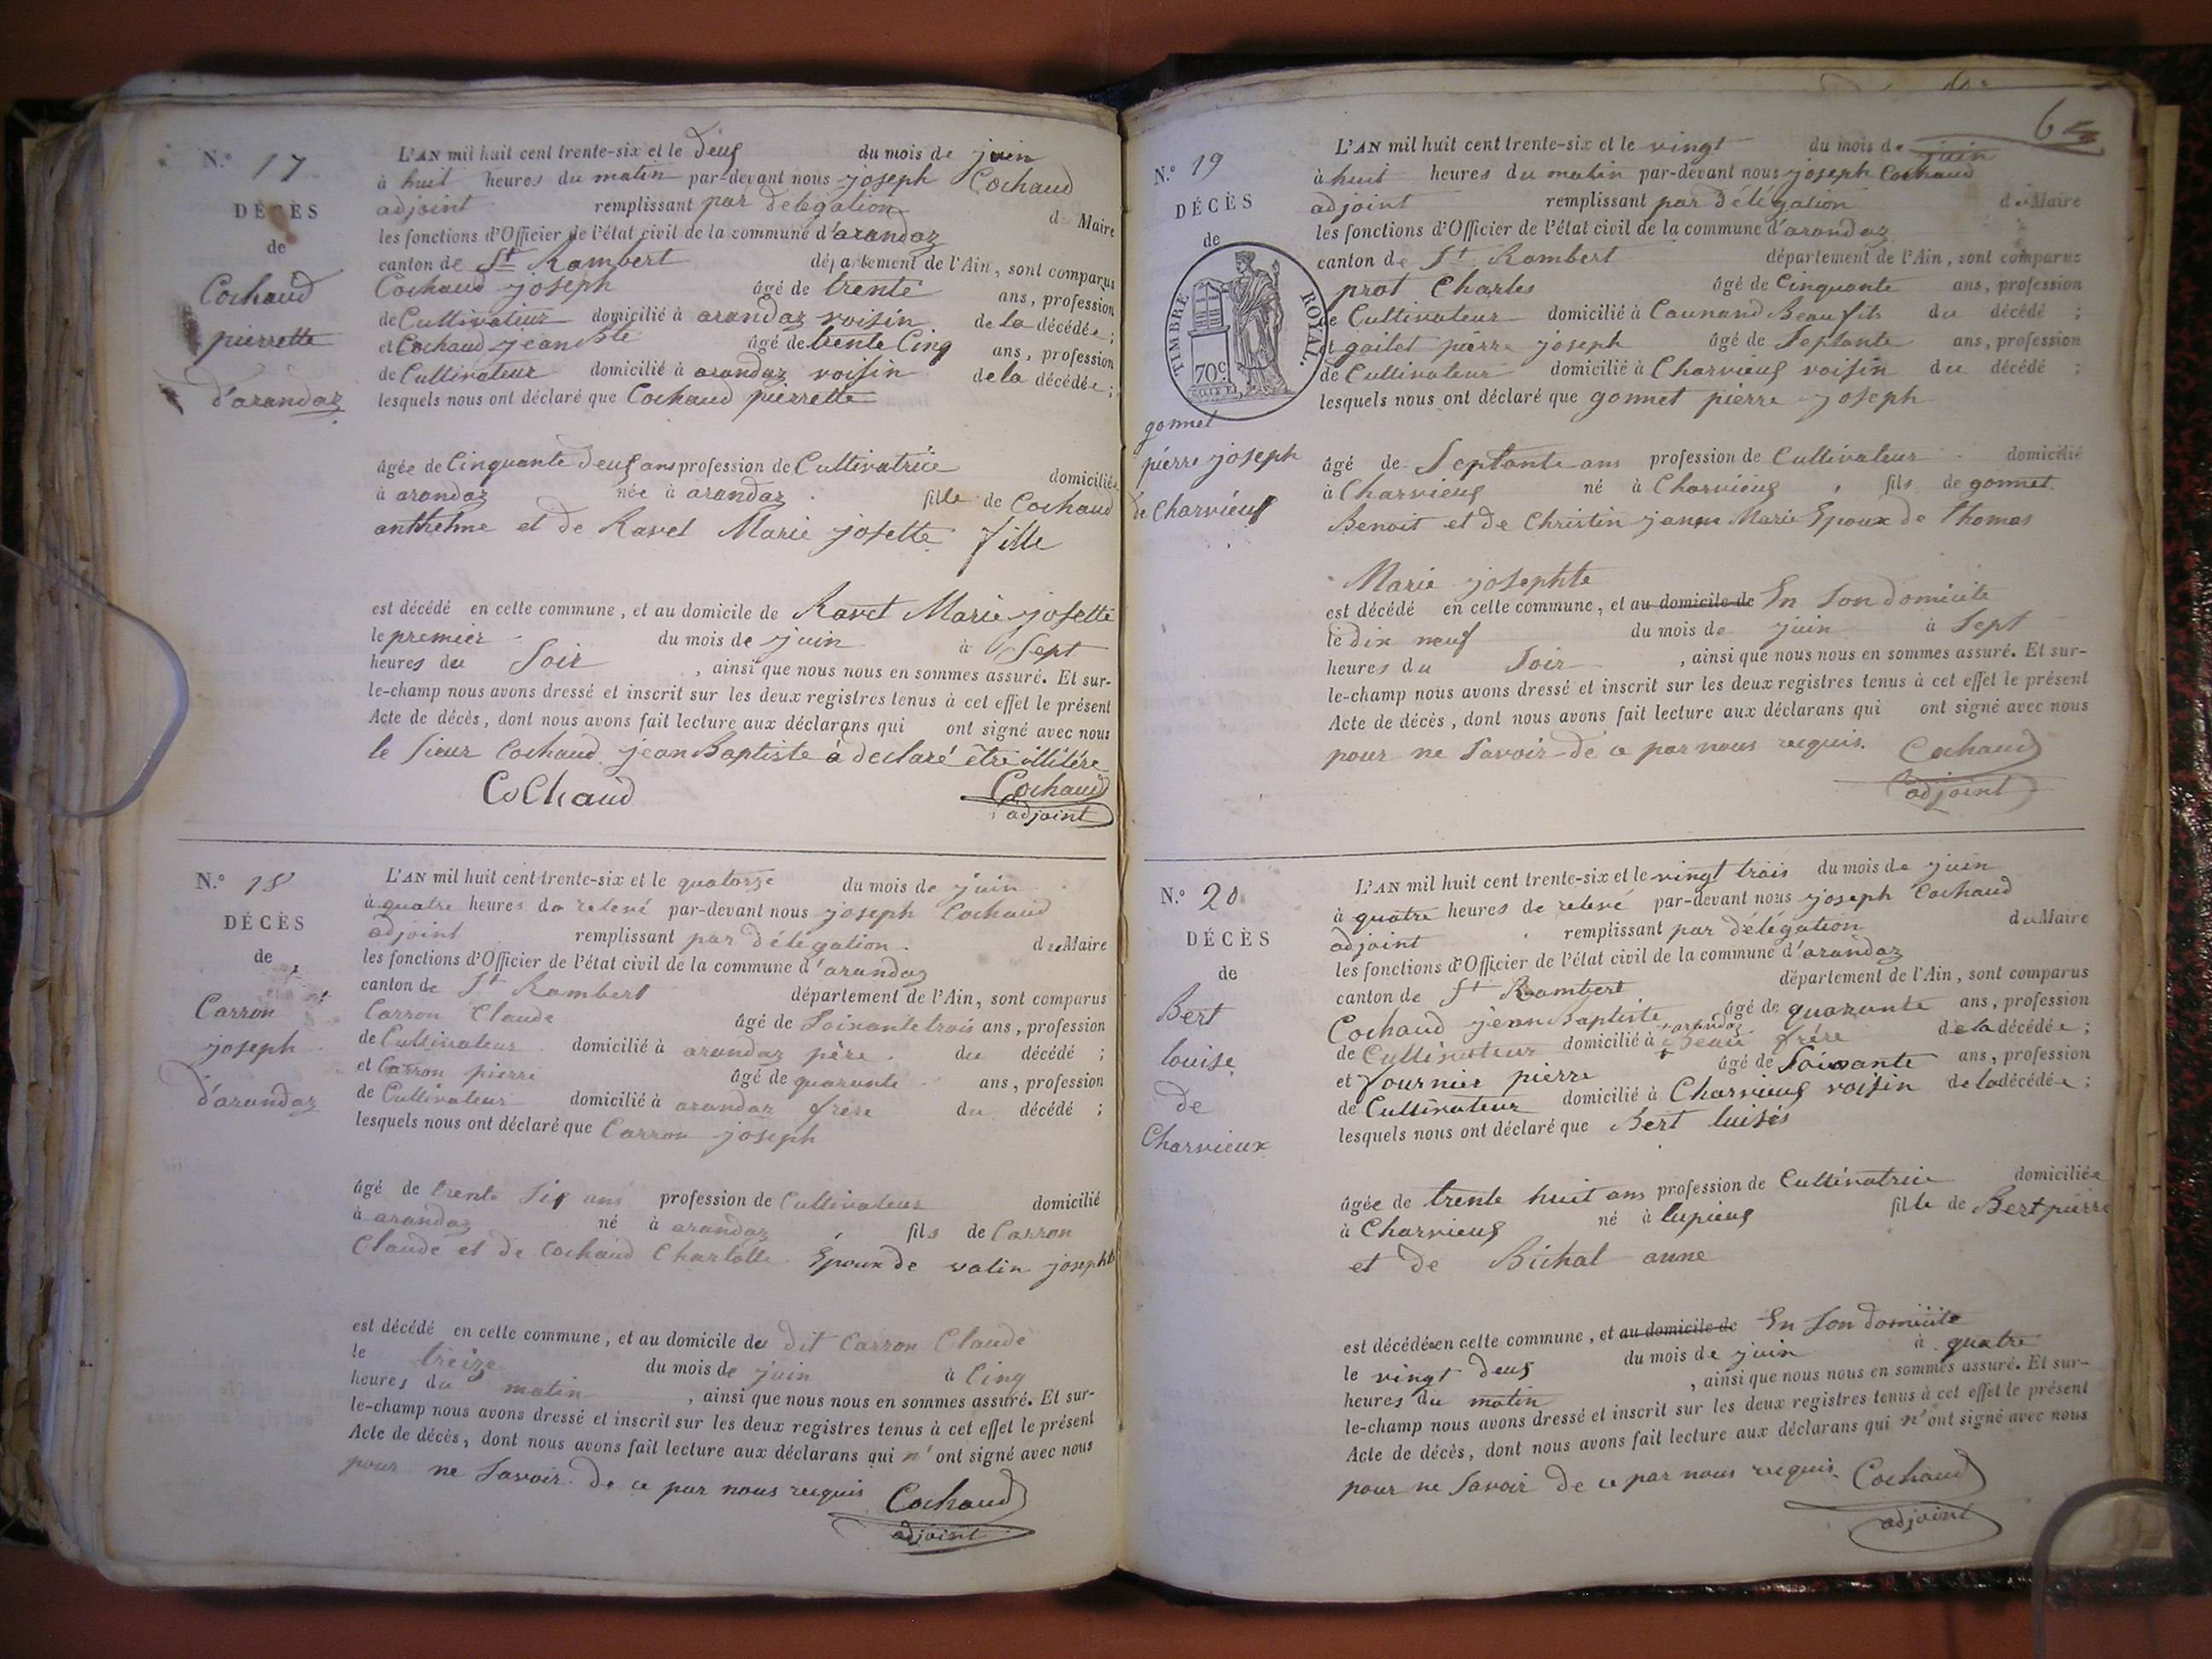 N.º 17
DÉCÈS
de
Cochaud
pierrette
d'arandaz
L'AN mil huit cent trente-six et le deux du mois de juin
à huit heures du matin par-devant nous joseph Cochaud
adjoint remplissant par délégation du Maire
les fonctions d'Officier de l'état civil de la commune d'arandaz
canton de St Rambert département de l'Ain, sont comparus
Cochaud joseph âgé de trente ans, profession
de Cultivateur domicilié à arandaz voisin de la décédée ;
et Cochaud jean Bte âgé de trente Cinq ans, profession
de Cultivateur domicilié à arandaz voisin de la décédée ;
lesquels nous ont déclaré que Cochaud pierrette
âgée de Cinquante deux ans profession de Cultivatrice domiciliée
à arandaz née à arandaz fille de Cochaud
anthelme et de Ravet Marie josette fille
est décédé en cette commune, et au domicile de Ravet Marie josette
le premier du mois de juin à Sept
heures du Soir , ainsi que nous nous en sommes assuré. Et sur-
le-champ nous avons dressé et inscrit sur les deux registres tenus à cet effet le présent
Acte de décès, dont nous avons fait lecture aux déclarans qui ont signé avec nous
le Sieur Cochaud jean Baptiste à declaré être illitére
CoChaud Cochaud
adjoint
N.º 18
DÉCÈS
de
Carron
joseph
d'arandaz
L'AN mil huit cent trente-six et le quatorze du mois de juin
à quatre heures de relevé par-devant nous joseph Cochaud
adjoint remplissant par délégation du Maire
les fonctions d'Officier de l'état civil de la commune d'arandaz
canton de St Rambert département de l'Ain, sont comparus
Carron Claude âgé de Soixante trois ans, profession
de Cultivateur domicilié à arandaz père du décédé ;
et Carron pierre âgé de quarante ans, profession
de Cultivateur domicilié à arandaz frère du décédé ;
lesquels nous ont déclaré que Carron joseph
âgé de trente Six ans profession de Cultivateur domicilié
à arandaz né à arandaz , fils de Carron
Claude et de Cochaud Charlotte Epoux de vatin josephte
est décédé en cette commune, et au domicile du dit Carron Claude
le treize du mois de juin à Cinq
heures du matin , ainsi que nous nous en sommes assuré. Et sur-
le-champ nous avons dressé et inscrit sur les deux registres tenus à cet effet le présent
Acte de décès, dont nous avons fait lecture aux déclarans qui n'ont signé avec nous
pour ne Savoir de ce par nous requis Cochaud
adjoint
N.º 19
DÉCÈS
de
TIMBRE ROYAL.
70c
gonnet
pierre joseph
de Charvieux
L'AN mil huit cent trente-six et le vingt du mois de juin
à huit heures du matin par-devant nous joseph Cochaud
adjoint remplissant par délégation du Maire
les fonctions d'Officier de l'état civil de la commune d'arandaz
canton de St Rambert département de l'Ain, sont comparus
prot Charles âgé de Cinquante ans, profession
de Cultivateur domicilié à Caunand Beaufils du décédé ;
et gaitet pierre joseph âgé de Septante ans, profession
de Cultivateur domicilié à Charvieux voisin du décédé ;
lesquels nous ont déclaré que gonnet pierre joseph
âgé de Septante ans profession de Cultivateur domicilié
à Charvieux né à Charvieux , fils de gonnet
Benoit et de Christin janne Marie Epoux de thomas
Marie josephte
est décédé en cette commune, et au domicile de En Son domicile
le dix neuf du mois de juin à Sept
heures du Soir , ainsi que nous nous en sommes assuré. Et sur-
le-champ nous avons dressé et inscrit sur les deux registres tenus à cet effet le présent
Acte de décès, dont nous avons fait lecture aux déclarans qui ont signé avec nous
pour ne Savoir de ce par nous requis. Cochaud
adjoint
N.º 20
DÉCÈS
de
Bert
louise
de
Charvieux
L'AN mil huit cent trente-six et le vingt trois du mois de juin
à quatre heures de relevé par-devant nous joseph Cochaud
adjoint remplissant par délégation du Maire
les fonctions d'Officier de l'état civil de la commune d'arandaz
canton de St Rambert département de l'Ain, sont comparus
Cochaud jean Baptiste âgé de quarante ans, profession
de Cultivateur domicilié à arandaz Beau frère de la décédée ;
et fournier pierre âgé de Soixante ans, profession
de Cultivateur domicilié à Charvieux voisin de la décédée ;
lesquels nous ont déclaré que Bert luise
âgée de trente huit ans profession de Cultivatrice domiciliée
à Charvieux né à lupieux fille de Bert pierre
et de Bichat anne
est décédée en cette commune, et au domicile de En Son domicile
le vingt deux du mois de juin à quatre
heures du matin , ainsi que nous nous en sommes assuré. Et sur-
le-champ nous avons dressé et inscrit sur les deux registres tenus à cet effet le présent
Acte de décès, dont nous avons fait lecture aux déclarans qui n'ont signé avec nous
pour ne Savoir de ce par nous requis Cochaud
adjoint